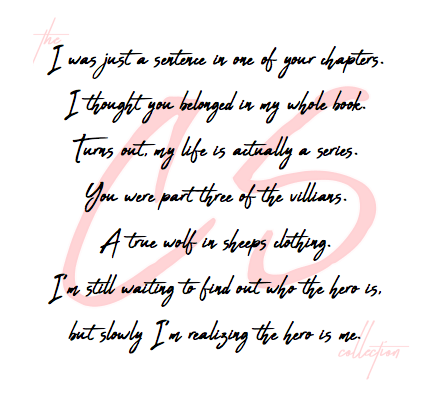 the
I was just a sentence in one of your chapters.
I thought you belonged in my whole book.
Turns out, my life is actually a series.
You were part three of the villians.
A true wolf in sheeps clothing.
I'm still waiting to find out who the hero is,
but slowly I'm realizing the hero is me.
CS
collection